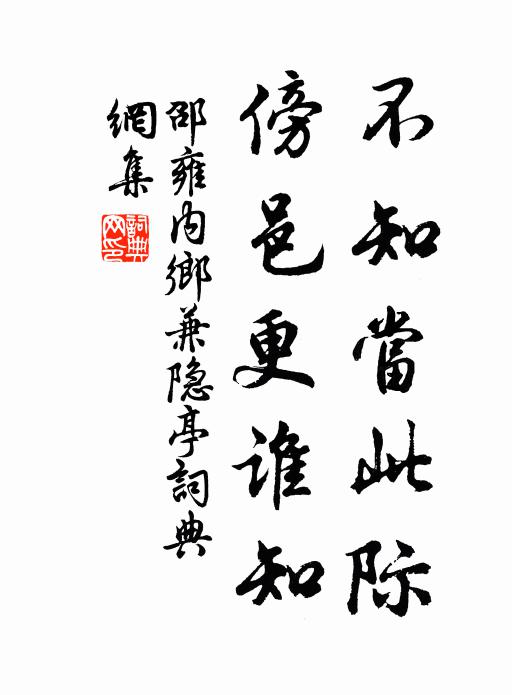 不知當此际
傍邑更誰知
邵雍内鄉兼隐亭詞典
網集
詞典
网印